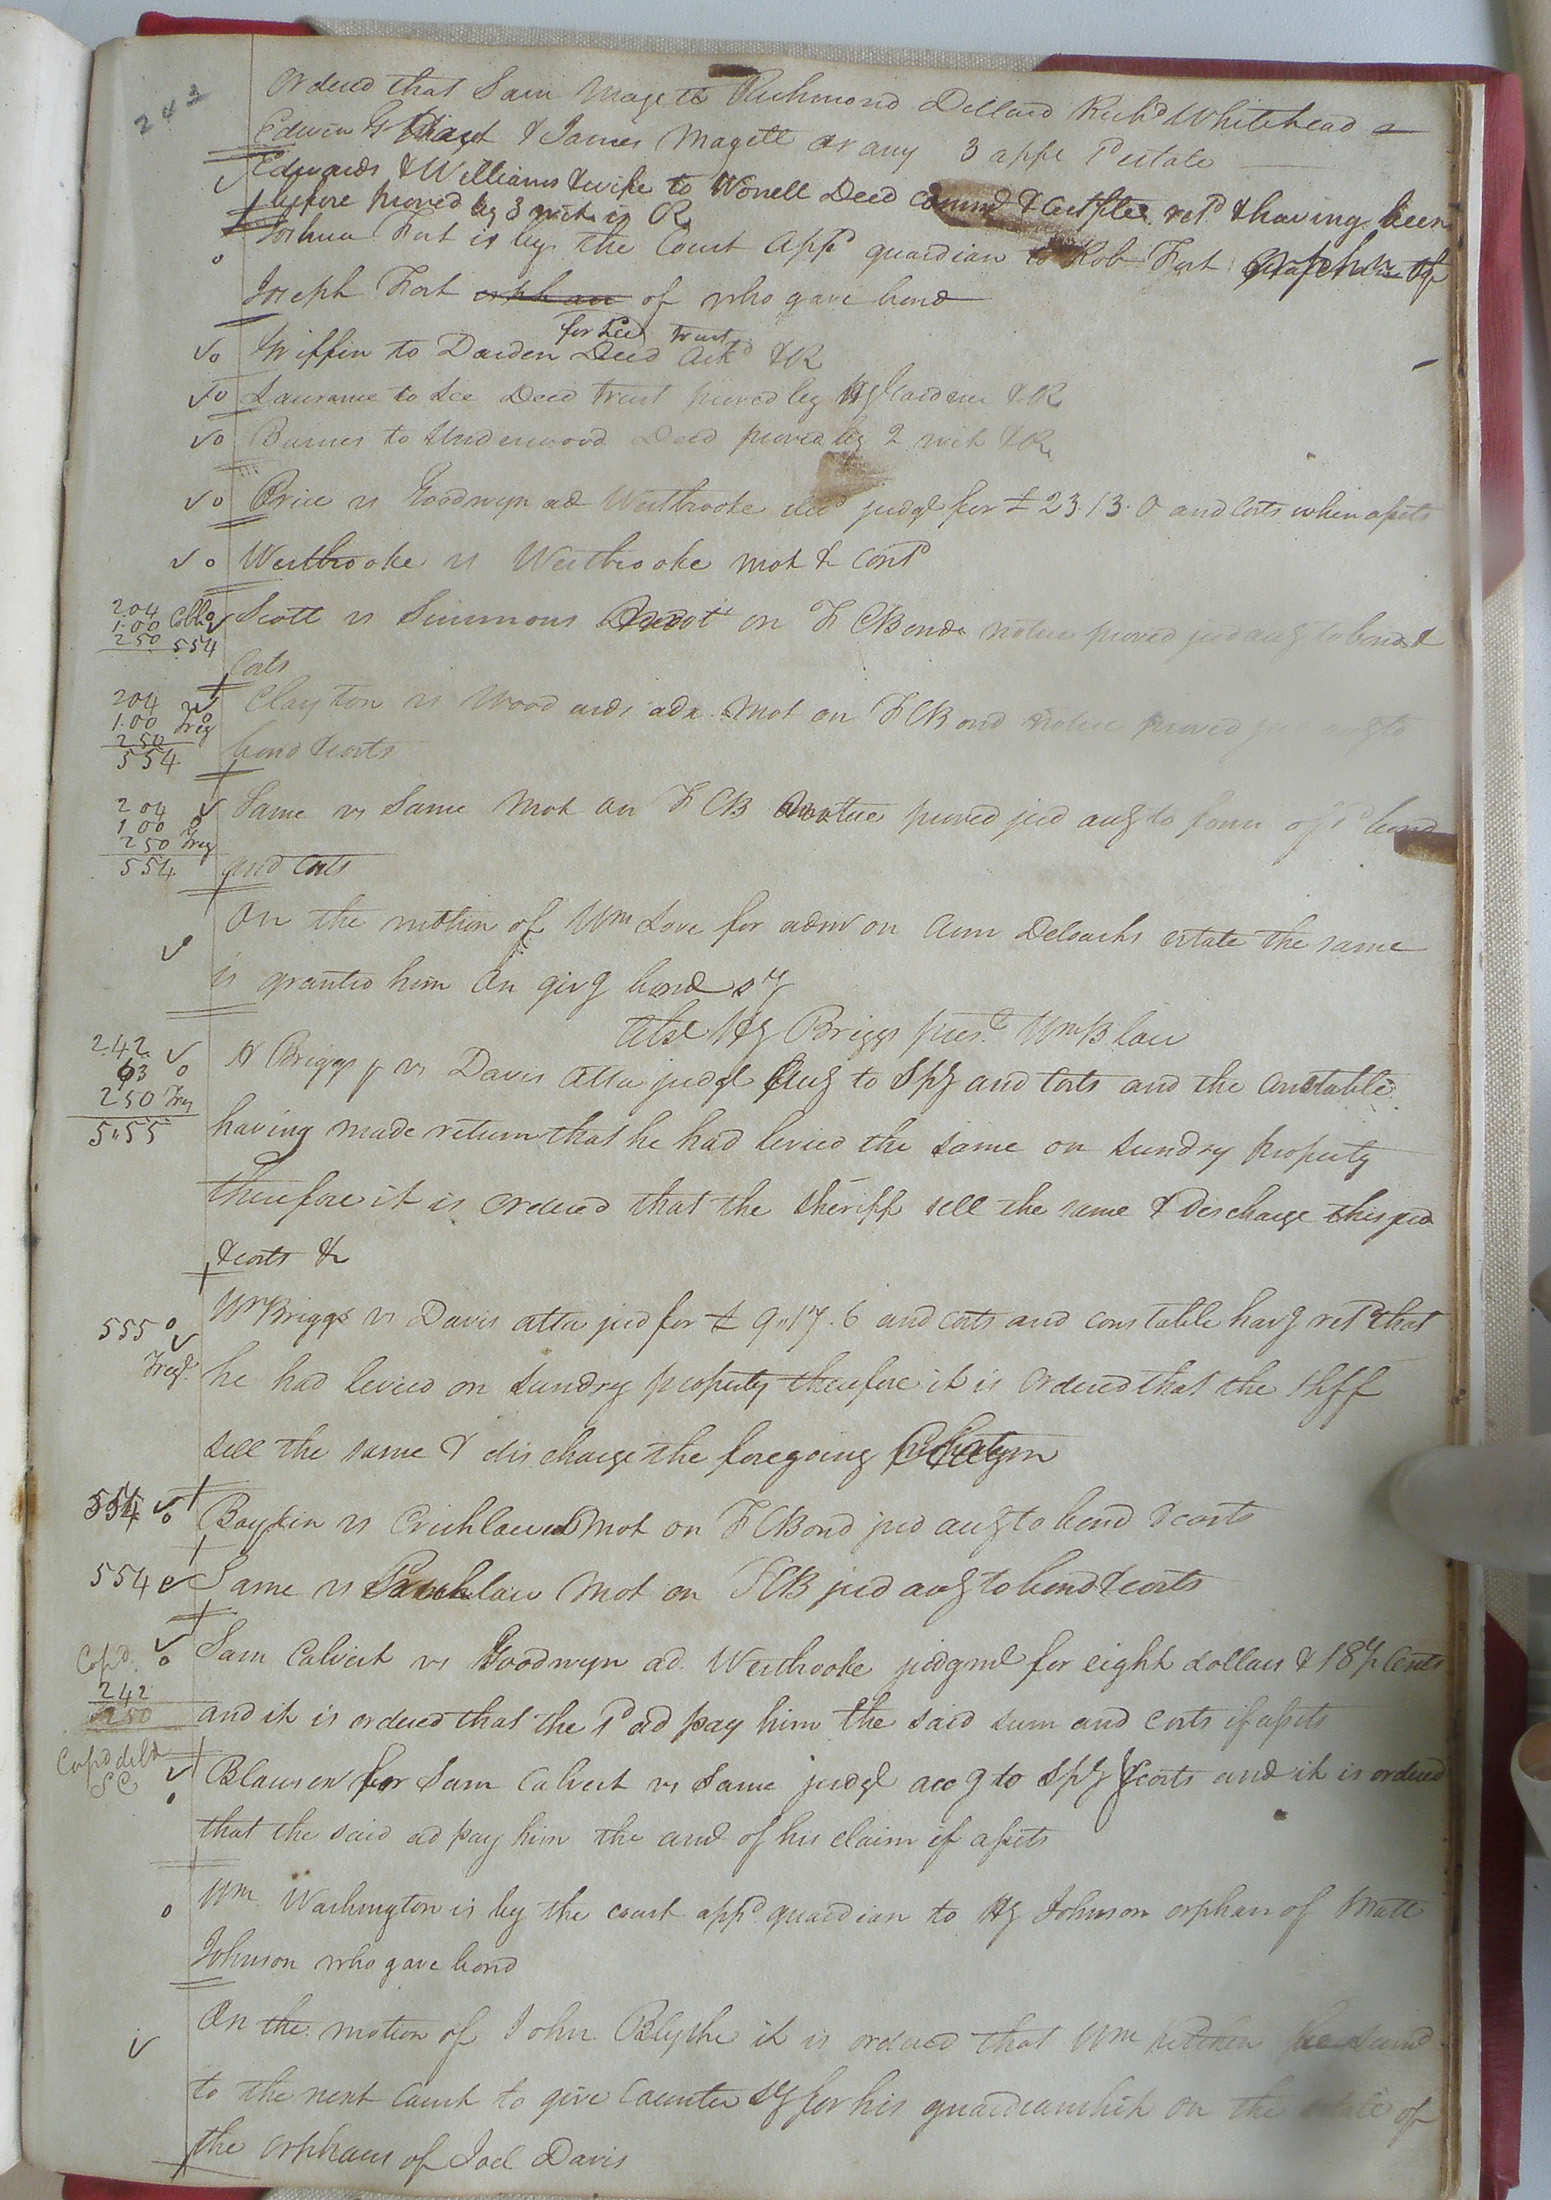 243
Ordered that Sam Magett Richmond Dillard Richd Whitehead
Edwin G Hart & James Magett or any 3 appr estate
Edwards & Williams & wife to Worrell Deed Commd & Certfte retd & having been
before proved by 3 wits is OR
Joshua Fort is by the Court appd guardian to Rob Fort orphan of
Joseph Fort orphan of who gave bond
for Led trust
Griffin to Darden Deed Ackd & R
Laurance to Lee Deed trust proved by Hy Gardner & R
Barnes to Underwood Deed proved by 2 wit & R
Price vs Goodwyn ad Westbrooke decd judgt for £ 23.13.0 and Costs when assets
Westbrooke vs Westbrooke mot & contd
204
1.00 Cobbs
250 554
Scott vs Simmons mot on F C Bond notice proved jud accg to bond &
Costs
204
1.00 Treg
250
554
Clayton vs Wood and adx Mot on F C Bond notice proved jud accg to
bond & costs
204
1 00
250 Treg
554
Same vs Same Mot on F C B notice proved jud accg to form of sd bond
and Costs
On the motion of Wm Love for admr on Ann Deloachs estate the same
is granted him on givg bond sy
Absd Hy Briggs prest Wm Blow
242
63
250 Treg
5.55
H Briggs vs Davis atta judgt accg to Spy and Costs and the Constable
having made return that he had levied the same on sundry property
therefore it is ordered that the sheriff sell the same & discharge this jud
& costs &c
555
Tregt
Wm Briggs vs Davis atta jud for £ 9.17.6 and costs and constable havg retd that
he had levied on sundry property therefore it is ordered that the shff
sell the same & discharge the foregoing
554
Boykin vs Crichlow Mot on F C Bond jud accg to bond & costs
554
Same vs Crichlow Mot on F C B jud accg to bond & costs
Copd.
242
250
Sam Calvert vs Goodwyn ad. Westbrooke judgmt for eight dollars & 18 Cents
and it is ordered that the sd ad pay him the said sum and costs if assets
Copd deld
SC
Blausen for Sam Calvert vs Same judgt accg to Spy & costs and it is ordered
that the said ad pay him the amt of his claim if assets
Wm Washington is by the court appd guardian to Hy Johnson orphan of Matt
Johnson who gave bond
On the motion of John Blythe it is ordered that Wm Kitchen be sumd
to the next Court to give Counter sy for his guardianship on the estate of
the orphans of Joel Davis